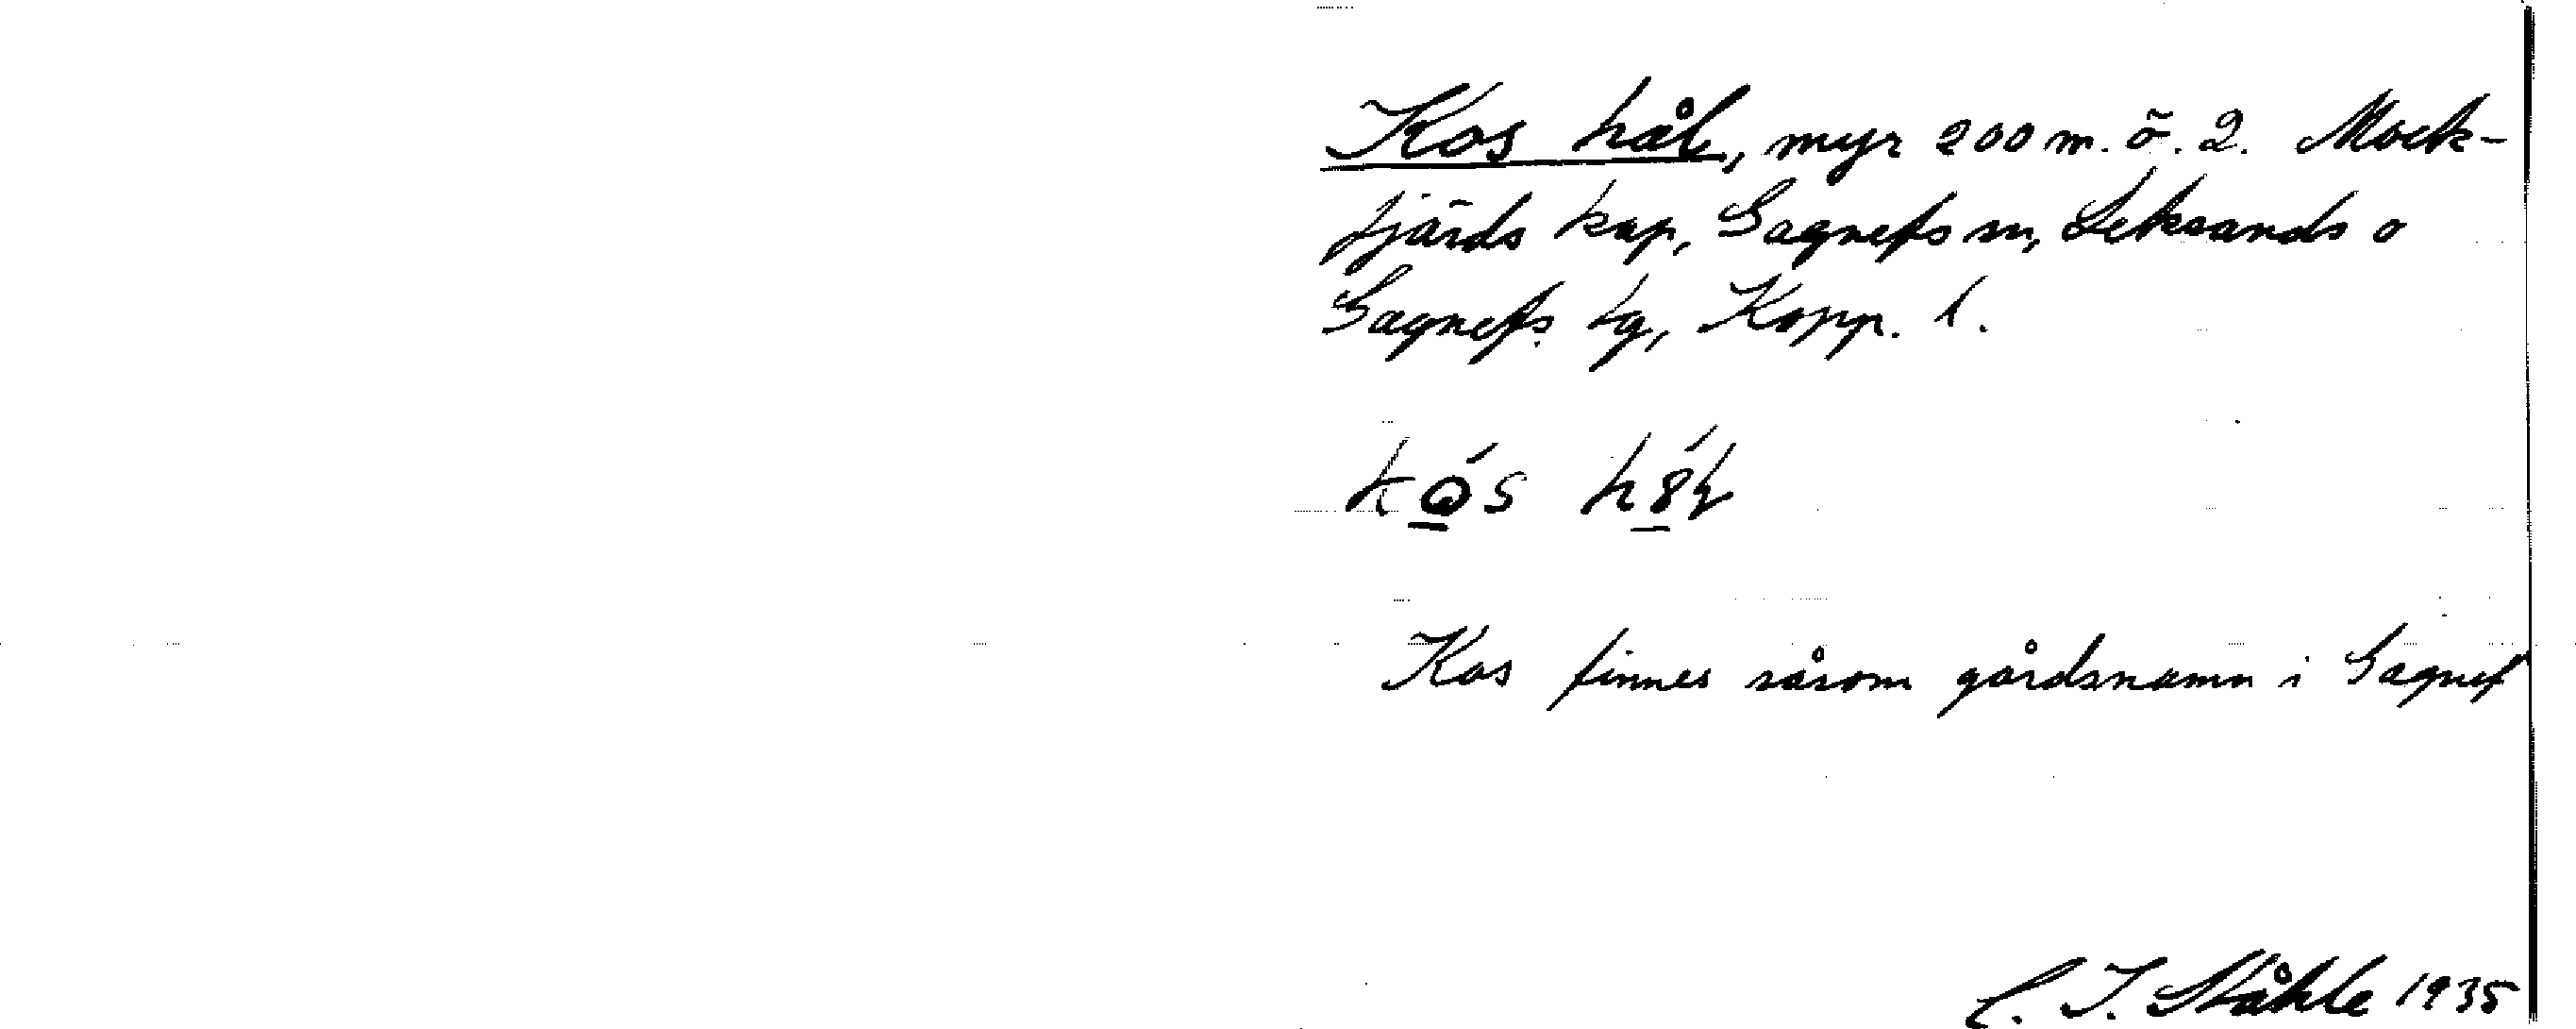 Kos hål, myr 200 m. ö. 2. Mock-
fjärds kap, Gagnefs sn, Leksands o
Gagnefs tg, Kopp. l.
Kos finnes såsom gårdsnamn i Gagnef
C. I. Ståhle 1935